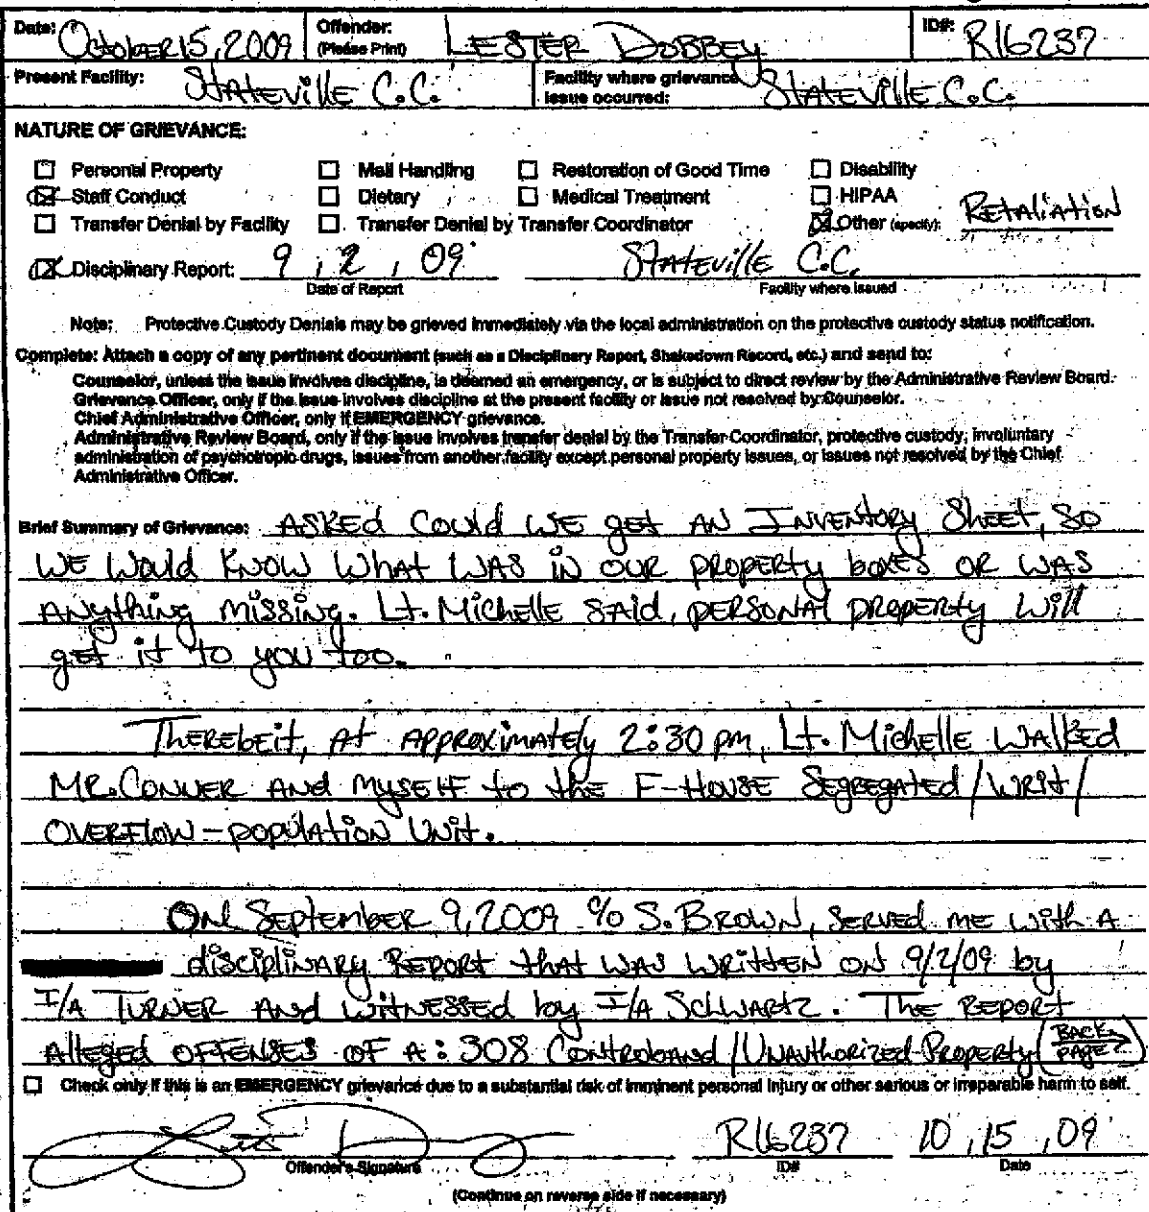 Date: October 15, 2009 Offender: (Please Print) LESTER DOBBEY ID#: R16237
Present Facility: STATEVILLE C.C. Facility where grievance issue occurred: STATEVILLE C.C.
NATURE OF GRIEVANCE:
☐ Personal Property ☐ Mail Handling ☐ Restoration of Good Time ☐ Disability
☒ Staff Conduct ☐ Dietary ☐ Medical Treatment ☐ HIPAA
☐ Transfer Denial by Facility ☐ Transfer Denial by Transfer Coordinator ☒ Other (specify): RETALIATION
☒ Disciplinary Report: 9 / 2 / 09 STATEVILLE C.C.
Date of Report Facility where issued
Note: Protective Custody Denials may be grieved immediately via the local administration on the protective custody status notification.
Complete: Attach a copy of any pertinent document (such as a Disciplinary Report, Shakedown Record, etc.) and send to:
Counselor, unless the issue involves discipline, is deemed an emergency, or is subject to direct review by the Administrative Review Board.
Grievance Officer, only if the issue involves discipline at the present facility or issue not resolved by Counselor.
Chief Administrative Officer, only if EMERGENCY grievance.
Administrative Review Board, only if the issue involves transfer denial by the Transfer Coordinator, protective custody, involuntary
administration of psychotropic drugs, issues from another facility except personal property issues, or issues not resolved by the Chief
Administrative Officer.
Brief Summary of Grievance: ASKED COULD WE GET AN INVENTORY SHEET, SO
WE WOULD KNOW WHAT WAS IN OUR PROPERTY BOXES OR WAS
ANYTHING MISSING. LT. MICHELLE SAID, PERSONAL PROPERTY WILL
GET IT TO YOU TOO.
THEREBEIT, AT APPROXIMATELY 2:30 PM, LT. MICHELLE WALKED
MR. CONNER AND MYSELF TO THE F-HOUSE SEGREGATED/WRIT/
OVERFLOW-POPULATION UNIT.
ON SEPTEMBER 9, 2009 C/O S. BROWN, SERVED ME WITH A
DISCIPLINARY REPORT THAT WAS WRITTEN ON 9/2/09 BY
I/A TURNER AND WITNESSED BY I/A SCHWARTZ. THE REPORT
ALLEGED OFFENSES OF A: 308 CONTROBAND/UNAUTHORIZED PROPERTY (BACK PAGE)
☐ Check only if this is an EMERGENCY grievance due to a substantial risk of imminent personal injury or other serious or irreparable harm to self.
R16237 10 / 15 / 09
Offender's Signature ID# Date
(Continue on reverse side if necessary)